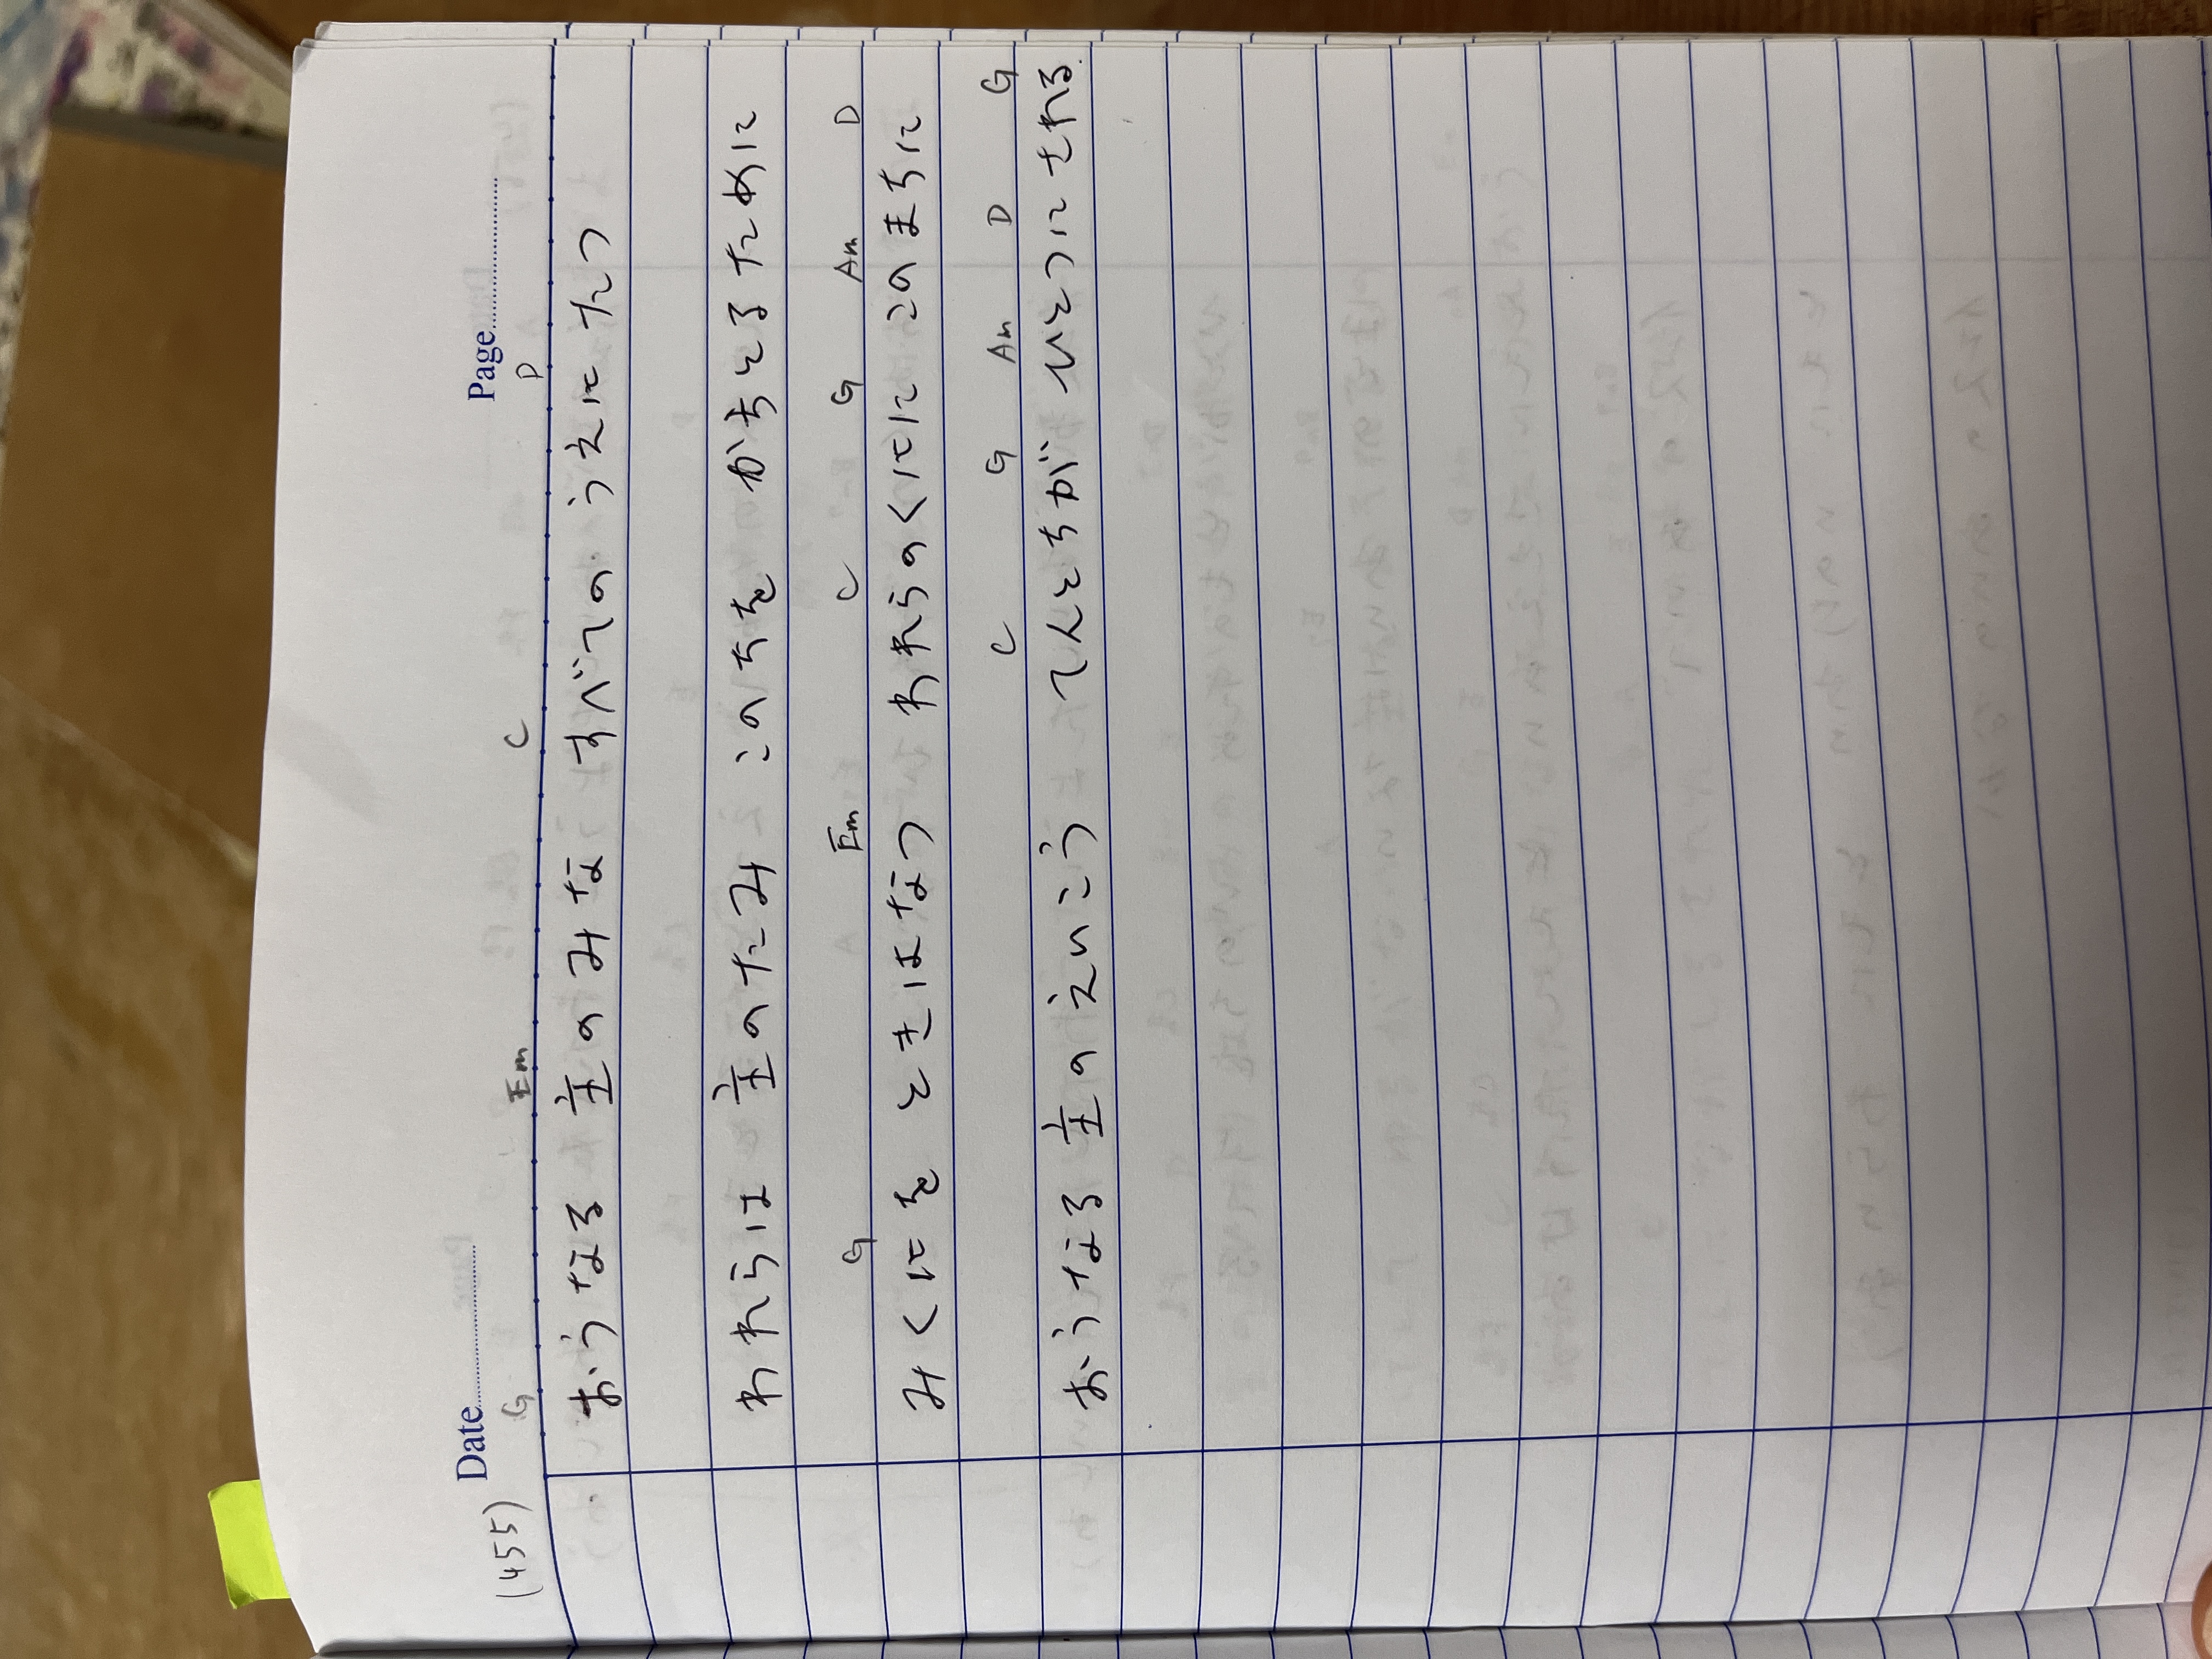 (455) Date Page
G Em C D
おうなる 主のみな すべてのうえにたつ
われらは 主のたみ このちを かちとるために
G Em C G Am D
みくにを ときはなつ われらのくにに このまちに
C G Am D G
おうなる 主のえいこう てんとちが ひとつにされる.